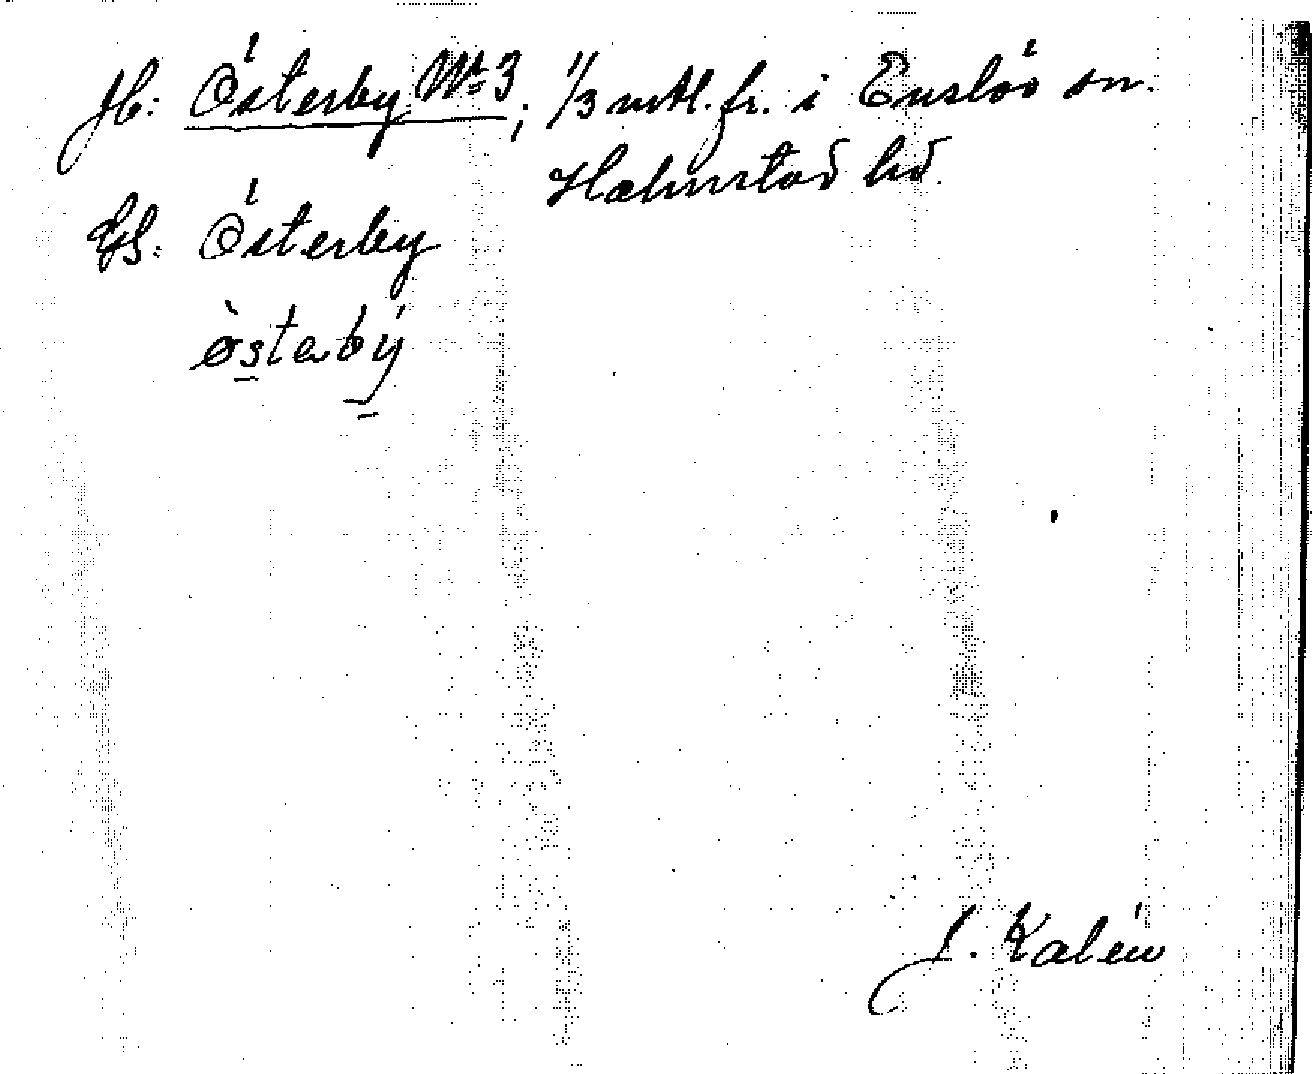 Jb: Österby No 3; 1/3 mtl. fr. i Enslöv sn.
Halmstad hd.
Gs: Österby
òstabý
J. Kalén